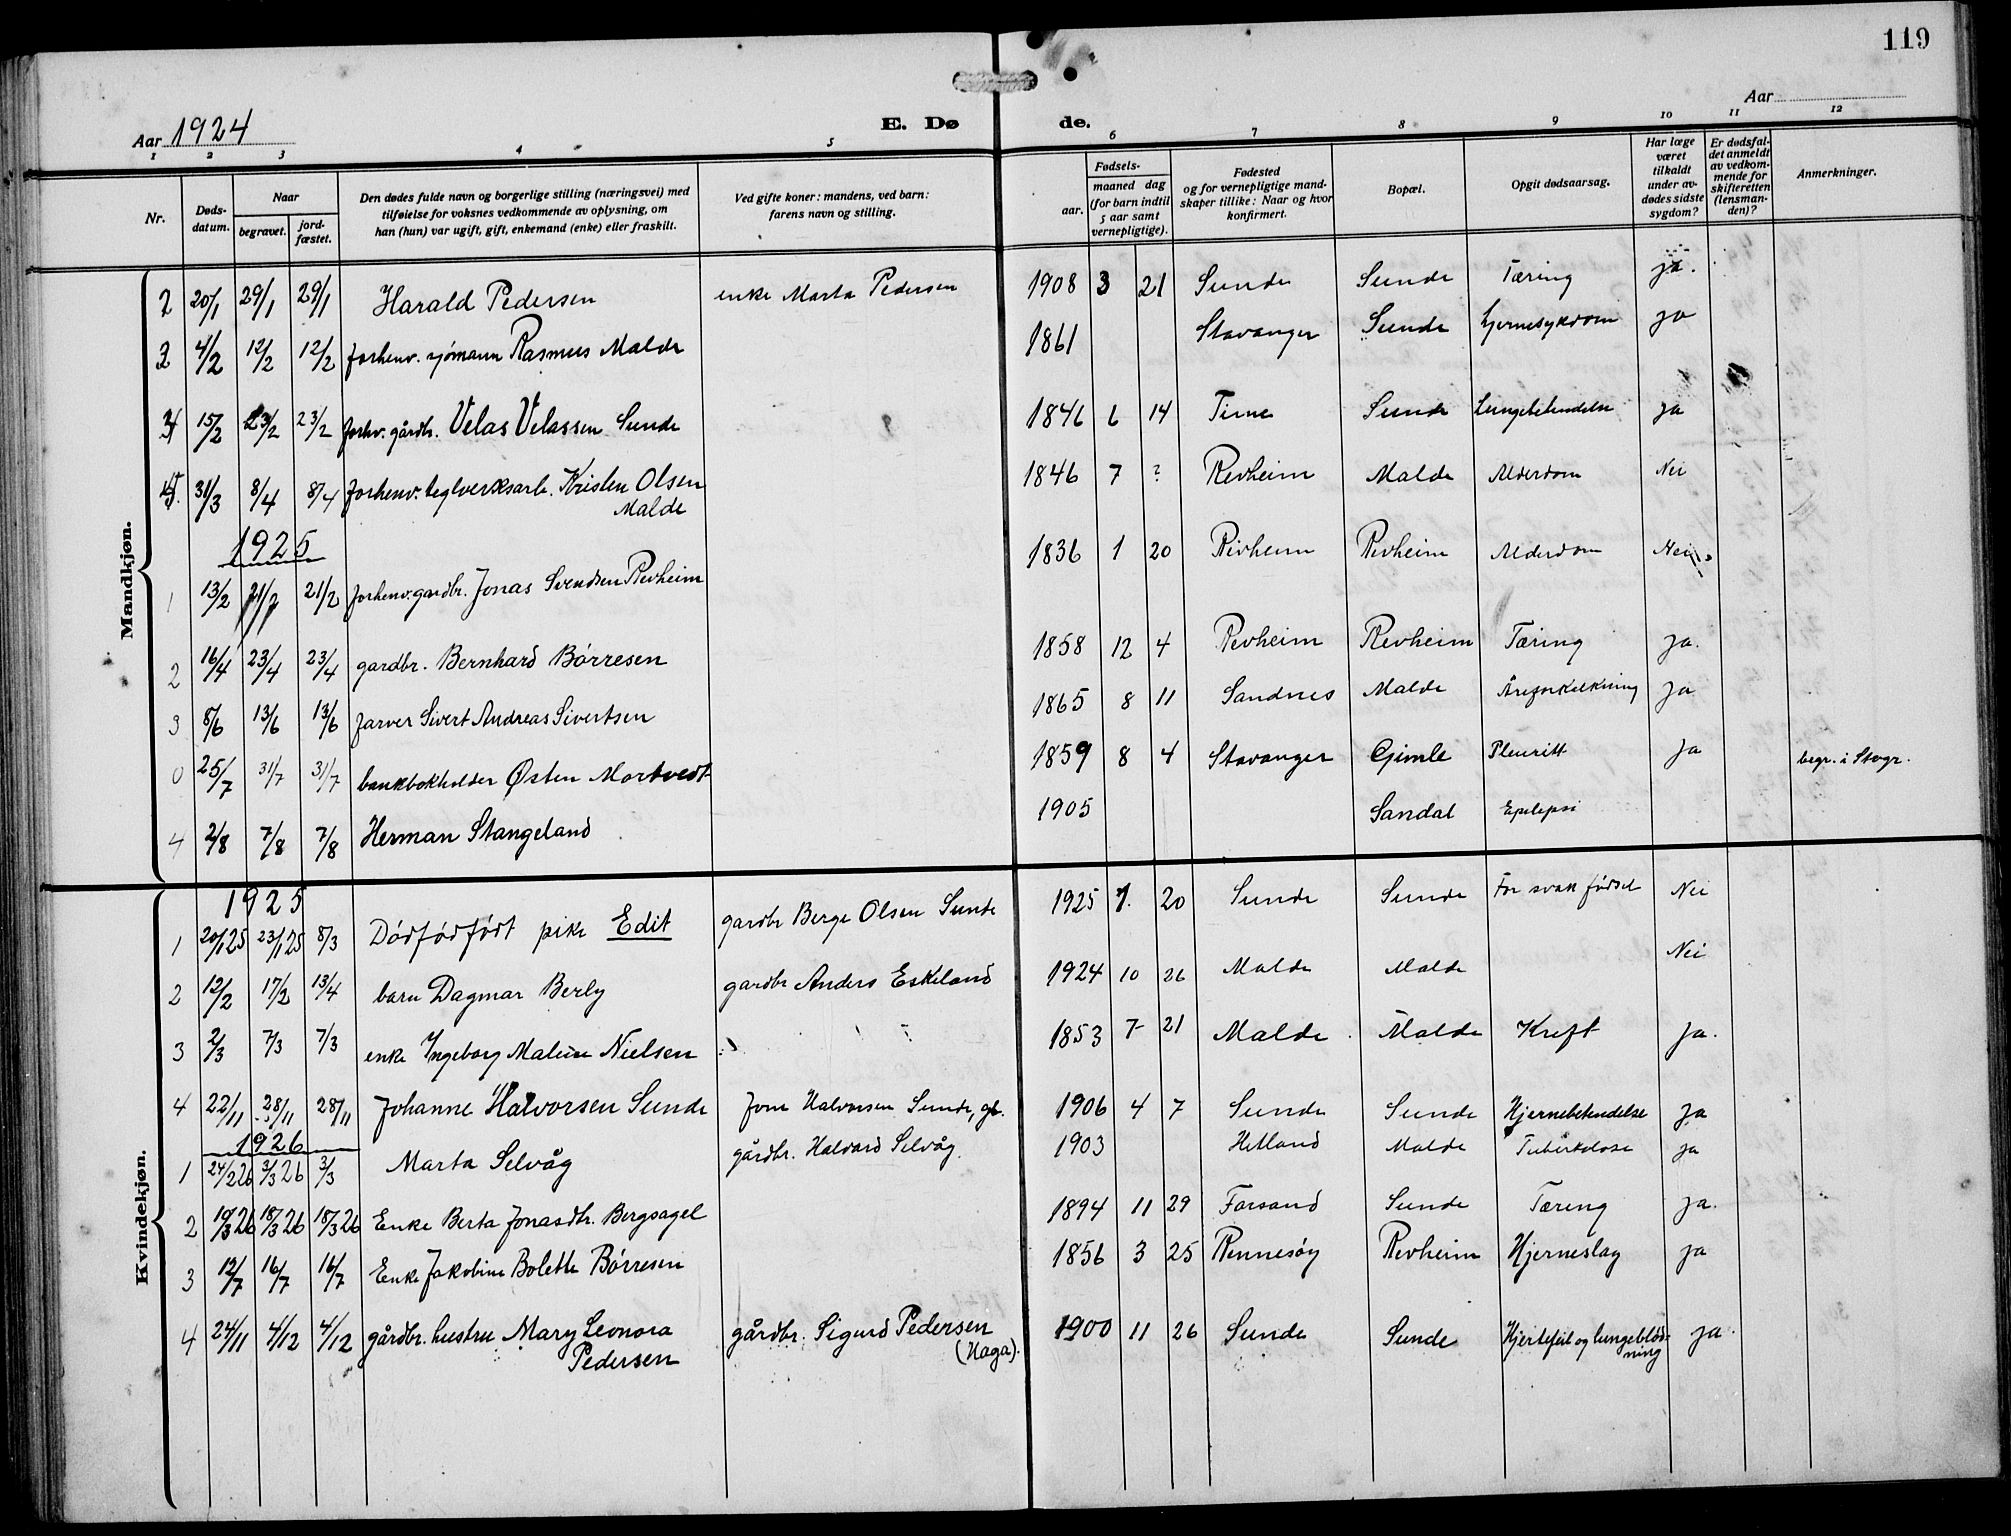 119
Aar 1924
E. Døde.
Aar
1 2 3 4 5 6 7 8 9 10 11 12
Nr.
Dødsdatum.
Naar
begravet. jordfæstet.
Den dødes fulde navn og borgerlige stilling (næringsvei) med tilføielse for voksnes vedkommende av oplysning, om han (hun) var ugift, gift, enkemand (enke) eller fraskilt.
Ved gifte koner: mandens, ved barn: farens navn og stilling.
Fødsels-
aar. maaned dag (for barn indtil 5 aar samt vernepligtige).
Fødested og for vernepligtige mandskaper tillike: Naar og hvor konfirmert.
Bopæl.
Opgit dødsaarsag.
Har læge været tilkaldt under avdødes sidste sygdom?
Er dødsfaldet anmeldt av vedkommende for skifteretten (lensmanden)?
Anmerkninger.
Mandkjøn.
2 20/1 29/1 29/1 Harald Pedersen enke Marta Pedersen 1908 3 21 Sunde Sunde Tæring ja.
3 4/2 12/2 12/2 forhenv. sjømann Rasmus Malde 1861 Stavanger Sunde hjernesykdom ja
4 15/2 23/2 23/2 forhv. gårdb. Velas Velassen Sunde 1846 6 14 Time Sunde Lungebetendelse ja
5. 31/3 8/4 8/4 forhenv. teglverksarb. Kristen Olsen Malde 1846 7 ? Revheim Malde Alderdom Nei
1925
1 13/2 21/2 21/2 forhenv. gardbr. Jonas Svendsen Revheim 1836 1 20 Revheim Revheim Alderdom Nei
2 16/4 23/4 23/4 gardbr. Bernhard Børresen 1858 12 4 Revheim Revheim Tæring ja.
3 8/6 13/6 13/6 farver Sivert Andreas Sivertsen 1865 8 11 Sandnes Malde Åreforkalkning ja
0 25/7 31/7 31/7 bankbokholder Østen Mortvedt 1859 8 4 Stavanger Gimle Pleuritt ja begr. i Stvgr.
4 2/8 7/8 7/8 Herman Stangeland 1905 Sandal Epilepsi
Kvindekjøn.
1925
1 20/1 25 23/1 25 8/3 Dødfødfødt pike Edit gardbr Berge Olsen Sunde 1925 1. 20 Sunde Sunde For svak fødsel Nei
2 12/2 17/2 13/4 barn Dagmar Berly gardbr Anders Eskeland 1924 10 26 Malde Malde Nei
3 2/3 7/3 7/3 enke Ingeborg Malene Nielsen 1853 7 21 Malde Malde Kreft ja.
4 22/11 28/11 28/11 Johanne Halvorsen Sunde Jone Halvorsen Sunde, gb. 1906 4 7 Sunde Sunde Hjernebetendelse ja
1926
1 24/2 26 3/3 26 3/3 Marta Selvåg gårdbr. Halvard Selvåg. 1903 Hetland Malde Tuberkolose ja
2 10/3 26 18/3 26 18/3 26 Enke Berta Jonasdtr. Bergsagel 1894 11 29 Forsand Sunde Tæring ja.
3 12/7 16/7 16/7 Enke Jakobine Bolette Børresen 1856 3 25 Rennesøy Revheim Hjerneslag ja
4 24/11 4/12 4/12 gårdbr. hustru Mary Leonora Pedersen gårdbr. Sigurd Pedersen (Haga). 1900 11 26 Sunde Sunde Hjertefeil og lungeblødning ja.